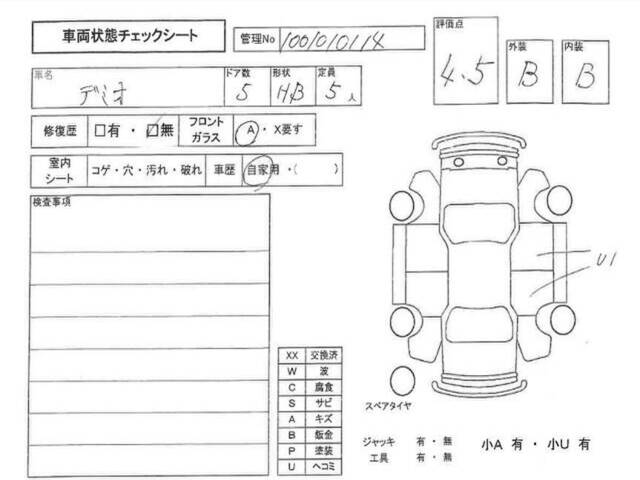 車両状態チェックシート
管理No 1001010114
評価点 4.5
外装 B
内装 B
車名 デミオ
ドア数 5
形状 HB
定員 5人
修復歴 □有・□無
フロントガラス A・X要す
室内シート コゲ・穴・汚れ・破れ
車歴 自家用・( )
検査事項
U1
XX 交換済
W 波
C 腐食
S サビ
A キズ
B 鈑金
P 塗装
U ヘコミ
スペアタイヤ
ジャッキ 有・無
工具 有・無
小A 有・小U 有